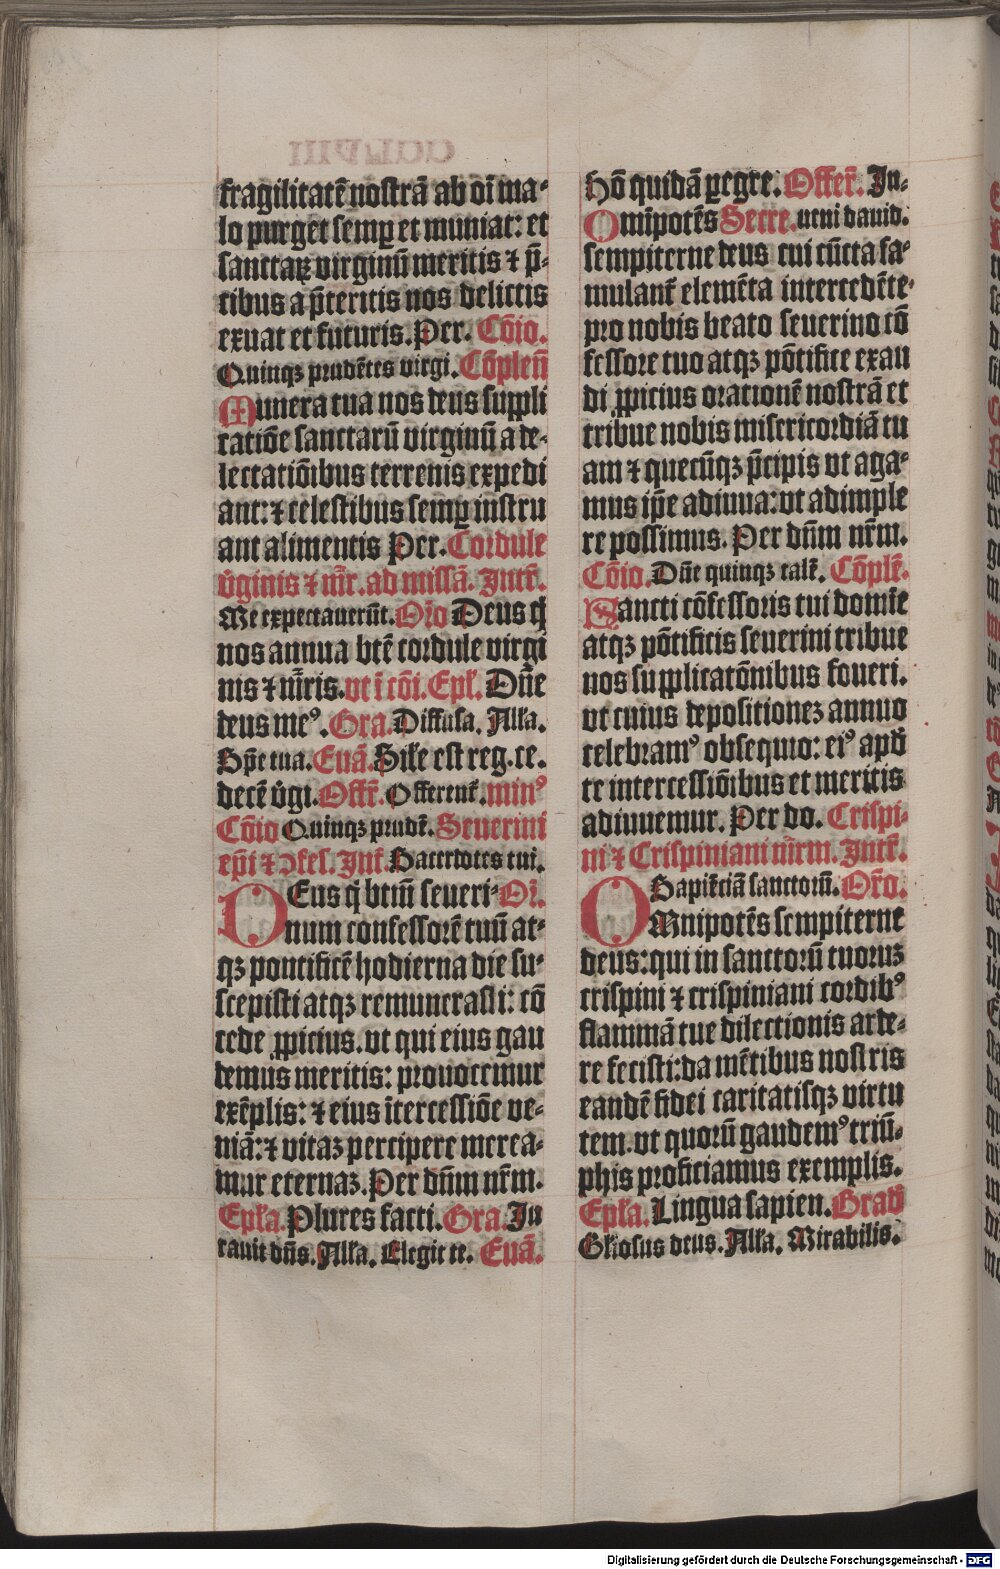 fragilitatē nostrā ab oī ma⸗
lo purget semꝑ et muniat: et
sanctaꝝ virginū meritis ⁊ p̄⸗
cibus a p̄teritis nos delictis
exuat et futuris. Per. Cōio.
Quinqꝫ prudētes virgi. Cōpleñ
Munera tua nos deus suppli
catiōe sanctarū virginū a de⸗
lectatiōibus terrenis expedi
ant: ⁊ celestibus semꝑ instru
ant alimentis Per. Cordule
v̄ginis ⁊ mr̄. ad missā. Intr̄.
Me expectauerūt. Or̄o Deus q̄
nos annua btē cordule virgi
nis ⁊ mr̄ris. vt ī cōi. Epł. Dn̄e
deus meꝰ. Gra. Diffusa. Alla.
Spē tua. Euā. Sile est reg. ce.
decē v̄gi. Offr̄. Offerent̄. minꝰ
Cōio Quinqꝫ prudēt. Seuerini
ep̄i ⁊ ↄfes. Int̄. Sacerdotes tui.
DEus q̄ btm̄ seueri⸗ Or̄.
num confessorē tuū at⸗
qꝫ pontificē hodierna die su⸗
scepisti atqꝫ remunerasti: cō
cede ꝓpicius. vt qui eius gau
demus meritis: prouocemur
exēplis: ⁊ eius ītercessiōe ve⸗
niā: ⁊ vitaꝫ percipere merea⸗
mur eternaꝫ. Per dn̄m nr̄m.
Epła. Plures facti. Gra. Iu
rauit dn̄s. Alla. Elegit te. Euā.
Hō quidā ꝑegre. Offer̄. In⸗
Omīpotēs Secre. ueni dauid.
sempiterne deus cui cūcta fa⸗
mulant̄ elemēta intercedēte⸗
pro nobis beato seuerino cō
fessore tuo atqꝫ pōtifice exau
di ꝓpicius orationē nostrā et
tribue nobis misericordiā tu
am ⁊ quecūqꝫ p̄cipis vt aga⸗
mus ip̄e adiuua: vt adimple
re possimus. Per dn̄m nr̄m.
Cōio. Dn̄e quinqꝫ tale̅. Cōple̅.
Sancti cōfessoris tui domīe
atqꝫ pōtificis seuerini tribue
nos supplicatōnibus foueri.
vt cuius depositioneꝫ annuo
celebramꝰ obsequio: eiꝰ apd̄
te intercessiōibus et meritis
adiuuemur. Per do. Crispi⸗
ni ⁊ Crispiniani mr̄m. Intr̄.
Sapiētiā sanctorū. Or̄o.
OMnipotēs sempiterne
deus: qui in sanctorū tuoruꝫ
crispini ⁊ crispiniani cordibꝰ
flammā tue dilectionis arde⸗
re fecisti: da mētibus nostris
eandē fidei caritatisqꝫ virtu
tem. vt quorū gaudemꝰ triū⸗
phis proficiamus exemplis.
Epła. Lingua sapien. Gradᷤ
Gl̄iosus deus. Alla. Mirabilis.
Digitalisierung gefördert durch die Deutsche Forschungsgemeinschaft - DFG